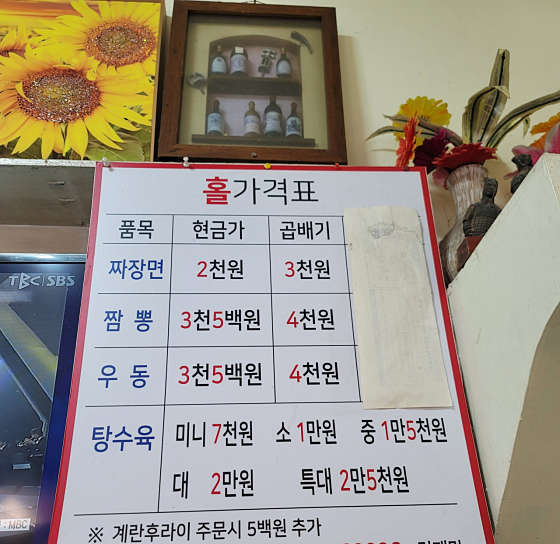 홀가격표
품목 현금가 곱배기
짜장면 2천원 3천원
짬뽕 3천5백원 4천원
우동 3천5백원 4천원
탕수육 미니 7천원 소 1만원 중 1만5천원
대 2만원 특대 2만5천원
※ 계란후라이 주문시 5백원 추가
TBC SBS
: MBC